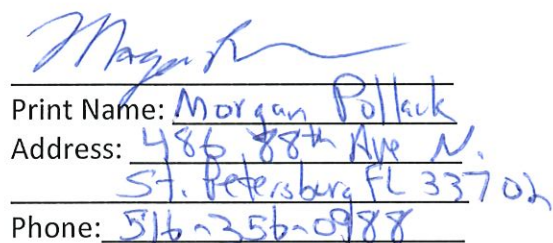 Print Name: Morgan Pollack
Address: 486 88th Ave N.
St. Petersburg FL 33702
Phone: 516-356-0988